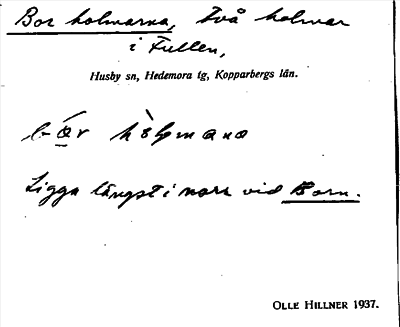 Bor holmarna, två holmar
i Fullen,
Husby sn, Hedemora tg, Kopparbergs län.
Ligga längst i norr vid Born.
OLLE HILLNER 1937.